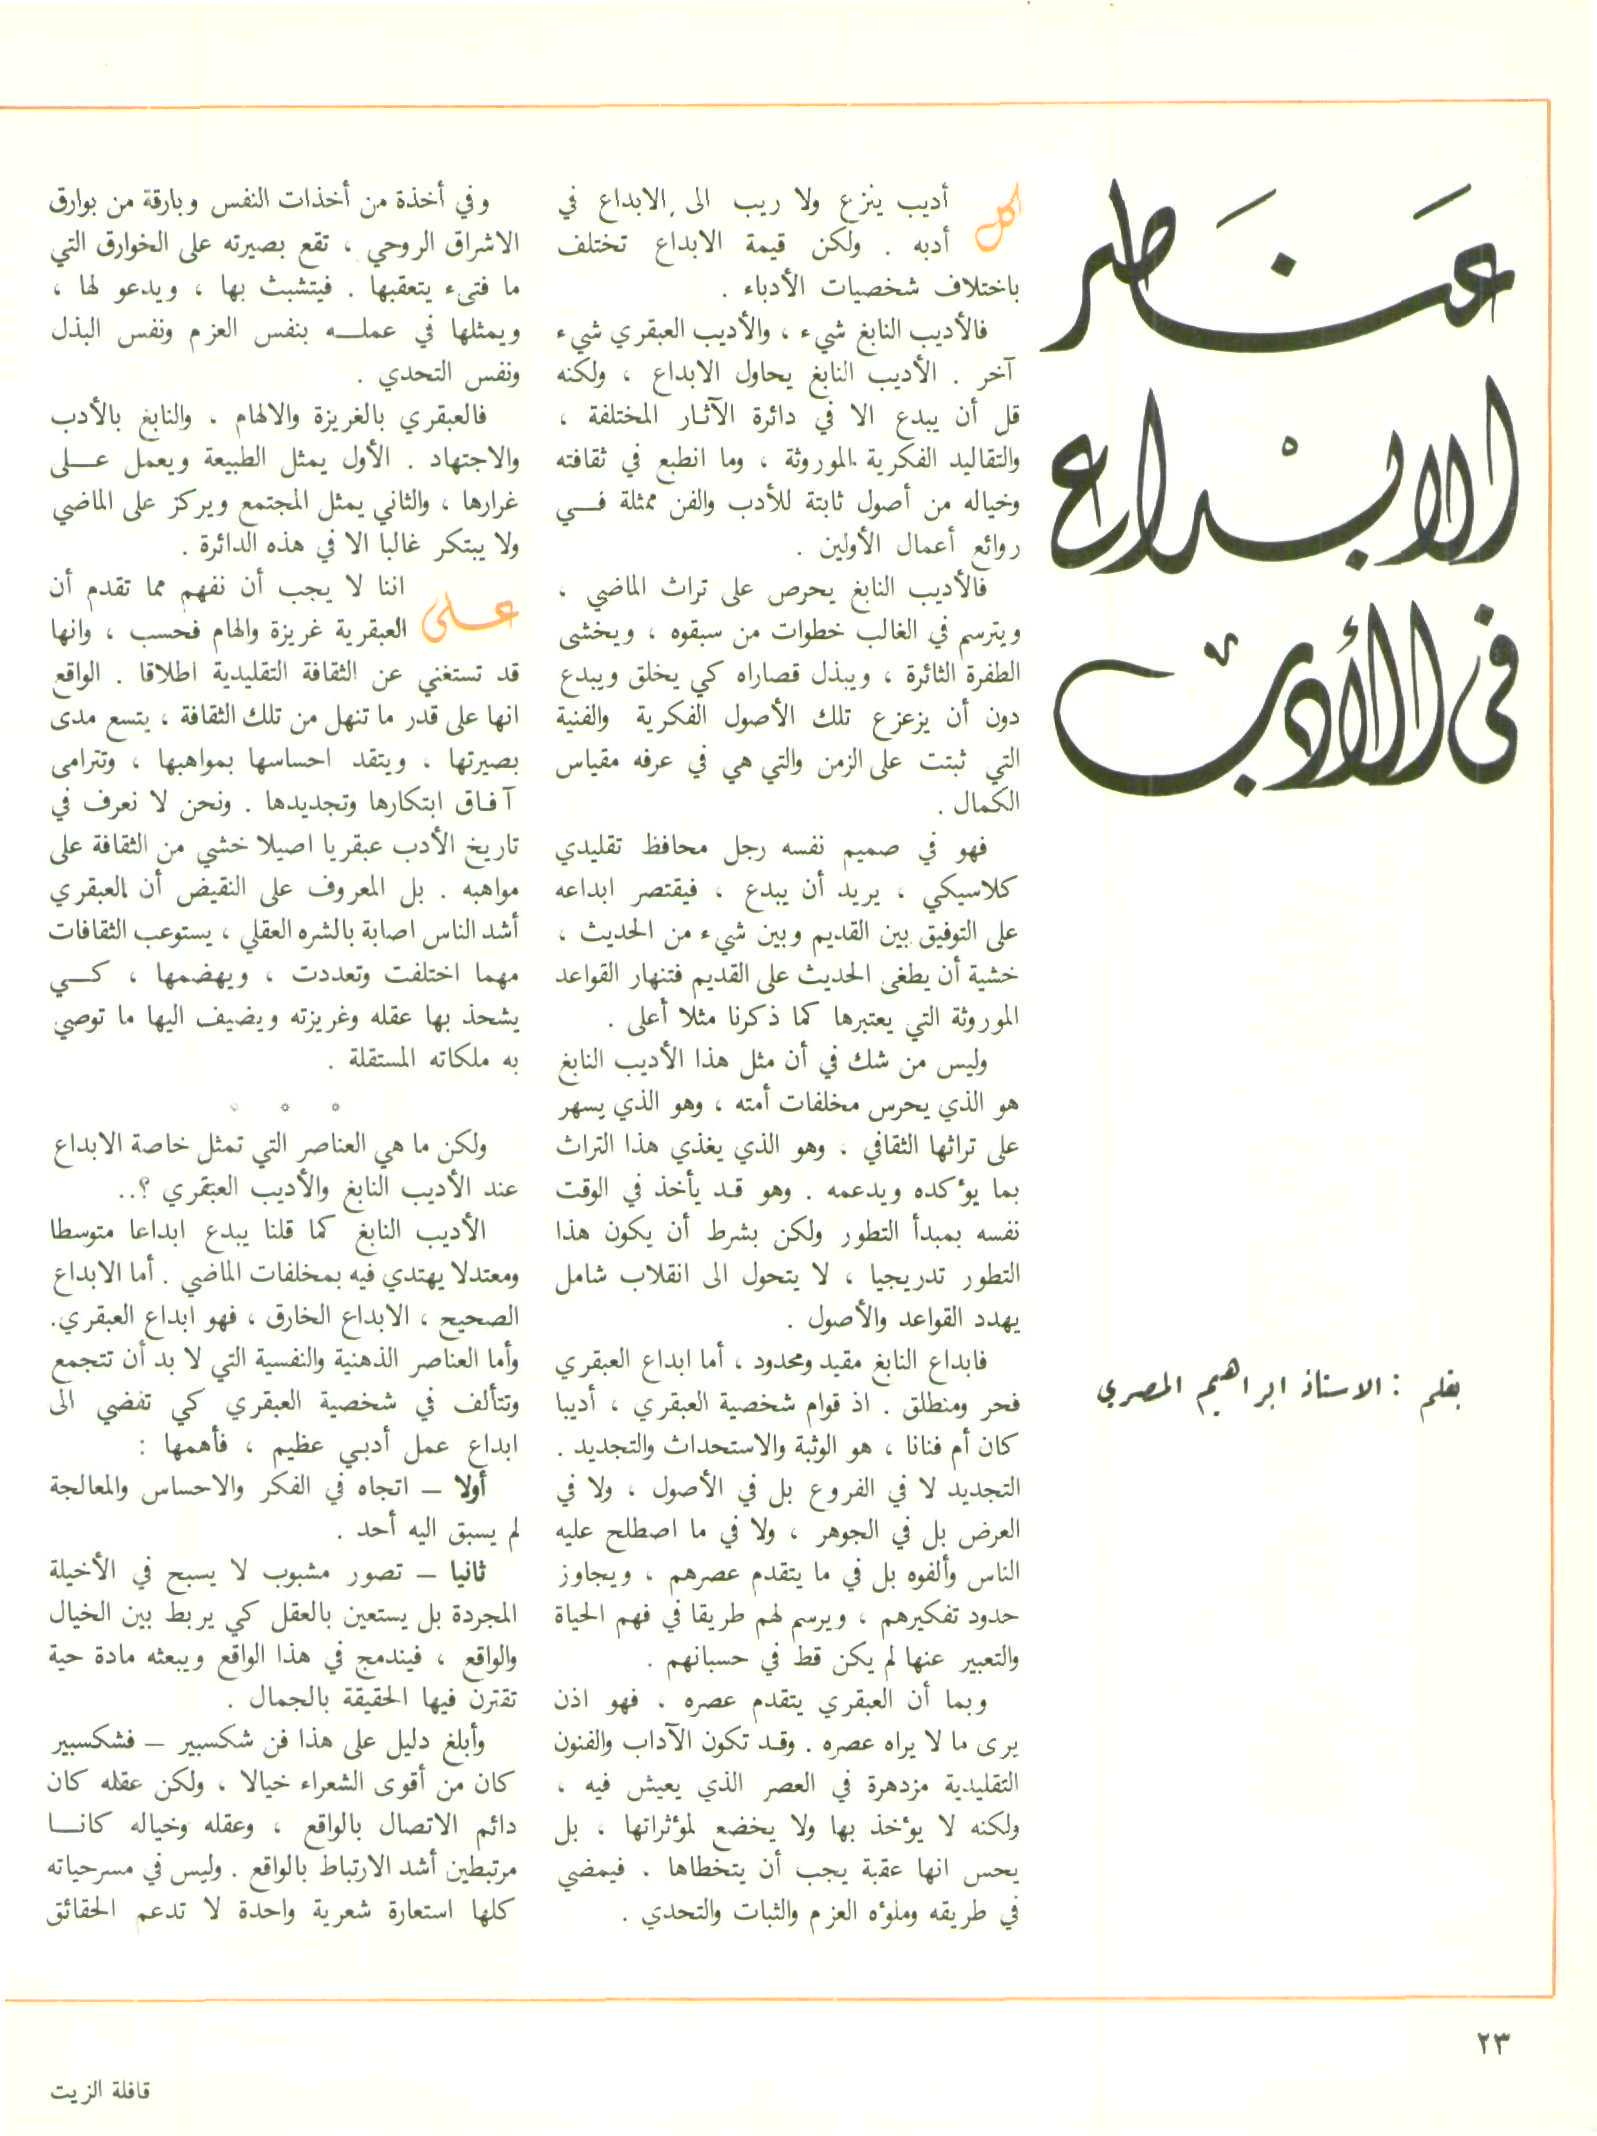 عناصر
الابداع
في الأدب
بقلم : الاستاذ ابراهيم المصري
كل أديب ينزع ولا ريب الى الابداع في
أدبه . ولكن قيمة الابداع تختلف
باختلاف شخصيات الأدباء .
فالأديب النابغ شيء ، والأديب العبقري شيء
آخر . الأديب النابغ يحاول الابداع ، ولكنه
قل أن يبدع الا في دائرة الآثار المختلفة ،
والتقاليد الفكرية الموروثة ، وما انطبع في ثقافته
وخياله من أصول ثابتة للأدب والفن ممثلة فـي
روائع أعمال الأولين .
فالأديب النابغ يحرص على تراث الماضي ،
ويترسم في الغالب خطوات من سبقوه ، ويخشى
الطفرة الثائرة ، ويبذل قصاراه كي يخلق ويبدع
دون أن يزعزع تلك الأصول الفكرية والفنية
التي ثبتت على الزمن والتي هي في عرفه مقياس
الكمال .
فهو في صميم نفسه رجل محافظ تقليدي
كلاسيكي ، يريد أن يبدع ، فيقتصر ابداعه
على التوفيق بين القديم وبين شيء من الحديث ،
خشية أن يطغى الحديث على القديم فتنهار القواعد
الموروثة التي يعتبرها كما ذكرنا مثلا أعلى .
وليس من شك في أن مثل هذا الأديب النابغ
هو الذي يحرس مخلفات أمته ، وهو الذي يسهر
على تراثها الثقافي . وهو الذي يغذي هذا التراث
بما يؤكده ويدعمه . وهو قد يأخذ في الوقت
نفسه بمبدأ التطور ولكن بشرط أن يكون هذا
التطور تدريجيا ، لا يتحول الى انقلاب شامل
يهدد القواعد والأصول .
فابداع النابغ مقيد ومحدود ، أما ابداع العبقري
فحر ومنطلق . اذ قوام شخصية العبقري ، أديبا
كان أم فنانا ، هو الوثبة والاستحداث والتجديد .
التجديد لا في الفروع بل في الأصول ، ولا في
العرض بل في الجوهر ، ولا في ما اصطلح عليه
الناس وألفوه بل في ما يتقدم عصرهم ، ويجاوز
حدود تفكيرهم ، ويرسم لهم طريقا في فهم الحياة
والتعبير عنها لم يكن قط في حسبانهم .
وبما أن العبقري يتقدم عصره . فهو اذن
يرى ما لا يراه عصره . وقد تكون الآداب والفنون
التقليدية مزدهرة في العصر الذي يعيش فيه ،
ولكنه لا يؤخذ بها ولا يخضع لمؤثراتها ، بل
يحس انها عقبة يجب أن يتخطاها . فيمضي
في طريقه وملؤه العزم والثبات والتحدي .
وفي أخذة من أخذات النفس وبارقة من بوارق
الاشراق الروحي ، تقع بصيرته على الخوارق التي
ما فتىء يتعقبها . فيتشبث بها ، ويدعو لها ،
ويمثلها في عملـه بنفس العزم ونفس البذل
ونفس التحدي .
فالعبقري بالغريزة والالهام . والنابغ بالأدب
والاجتهاد . الأول يمثل الطبيعة ويعمل عـلى
غرارها ، والثاني يمثل المجتمع ويركز على الماضي
ولا يبتكر غالبا الا في هذه الدائرة .
على اننا لا يجب أن نفهم مما تقدم أن
العبقرية غريزة والهام فحسب ، وانها
قد تستغني عن الثقافة التقليدية اطلاقا . الواقع
انها على قدر ما تنهل من تلك الثقافة ، يتسع مدى
بصيرتها ، ويتقد احساسها بمواهبها ، وتترامى
آفاق ابتكارها وتجديدها . ونحن لا نعرف في
تاريخ الأدب عبقريا اصيلا خشي من الثقافة على
مواهبه . بل المعروف على النقيض أن العبقري
أشد الناس اصابة بالشره العقلي ، يستوعب الثقافات
مهما اختلفت وتعددت ، ويهضمها ، كـي
يشحذ بها عقله وغريزته ويضيف اليها ما توصي
به ملكاته المستقلة .
* * *
ولكن ما هي العناصر التي تمثل خاصة الابداع
عند الأديب النابغ والأديب العبقري ؟..
الأديب النابغ كما قلنا يبدع ابداعا متوسطا
ومعتدلا يهتدي فيه بمخلفات الماضي . أما الابداع
الصحيح ، الابداع الخارق ، فهو ابداع العبقري.
وأما العناصر الذهنية والنفسية التي لا بد أن تتجمع
وتتألف في شخصية العبقري كي تفضي الى
ابداع عمل أدبي عظيم ، فأهمها :
أولا – اتجاه في الفكر والاحساس والمعالجة
لم يسبق اليه أحد .
ثانيا – تصور مشبوب لا يسبح في الأخيلة
المجردة بل يستعين بالعقل كي يربط بين الخيال
والواقع ، فيندمج في هذا الواقع ويبعثه مادة حية
تقترن فيها الحقيقة بالجمال .
وأبلغ دليل على هذا فن شكسبير – فشكسبير
كان من أقوى الشعراء خيالا ، ولكن عقله كان
دائم الاتصال بالواقع ، وعقله وخياله كانـا
مرتبطين أشد الارتباط بالواقع . وليس في مسرحياته
كلها استعارة شعرية واحدة لا تدعم الحقائق
٢٣
قافلة الزيت